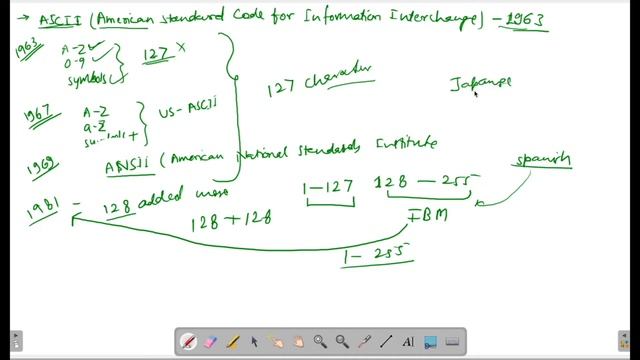 → ASCII (American Standard Code for Information Interchange) - 1963
1963 A-Z
0-9
symbols
127 x
127 Charatur
Japanese
1967 A-Z
a-z
+
US-ASCII
1969 ANSII (American National Standards Institute
spanish
1-127 128 - 255
1981 - 128 added more
128+128
IBM
1- 255
AI